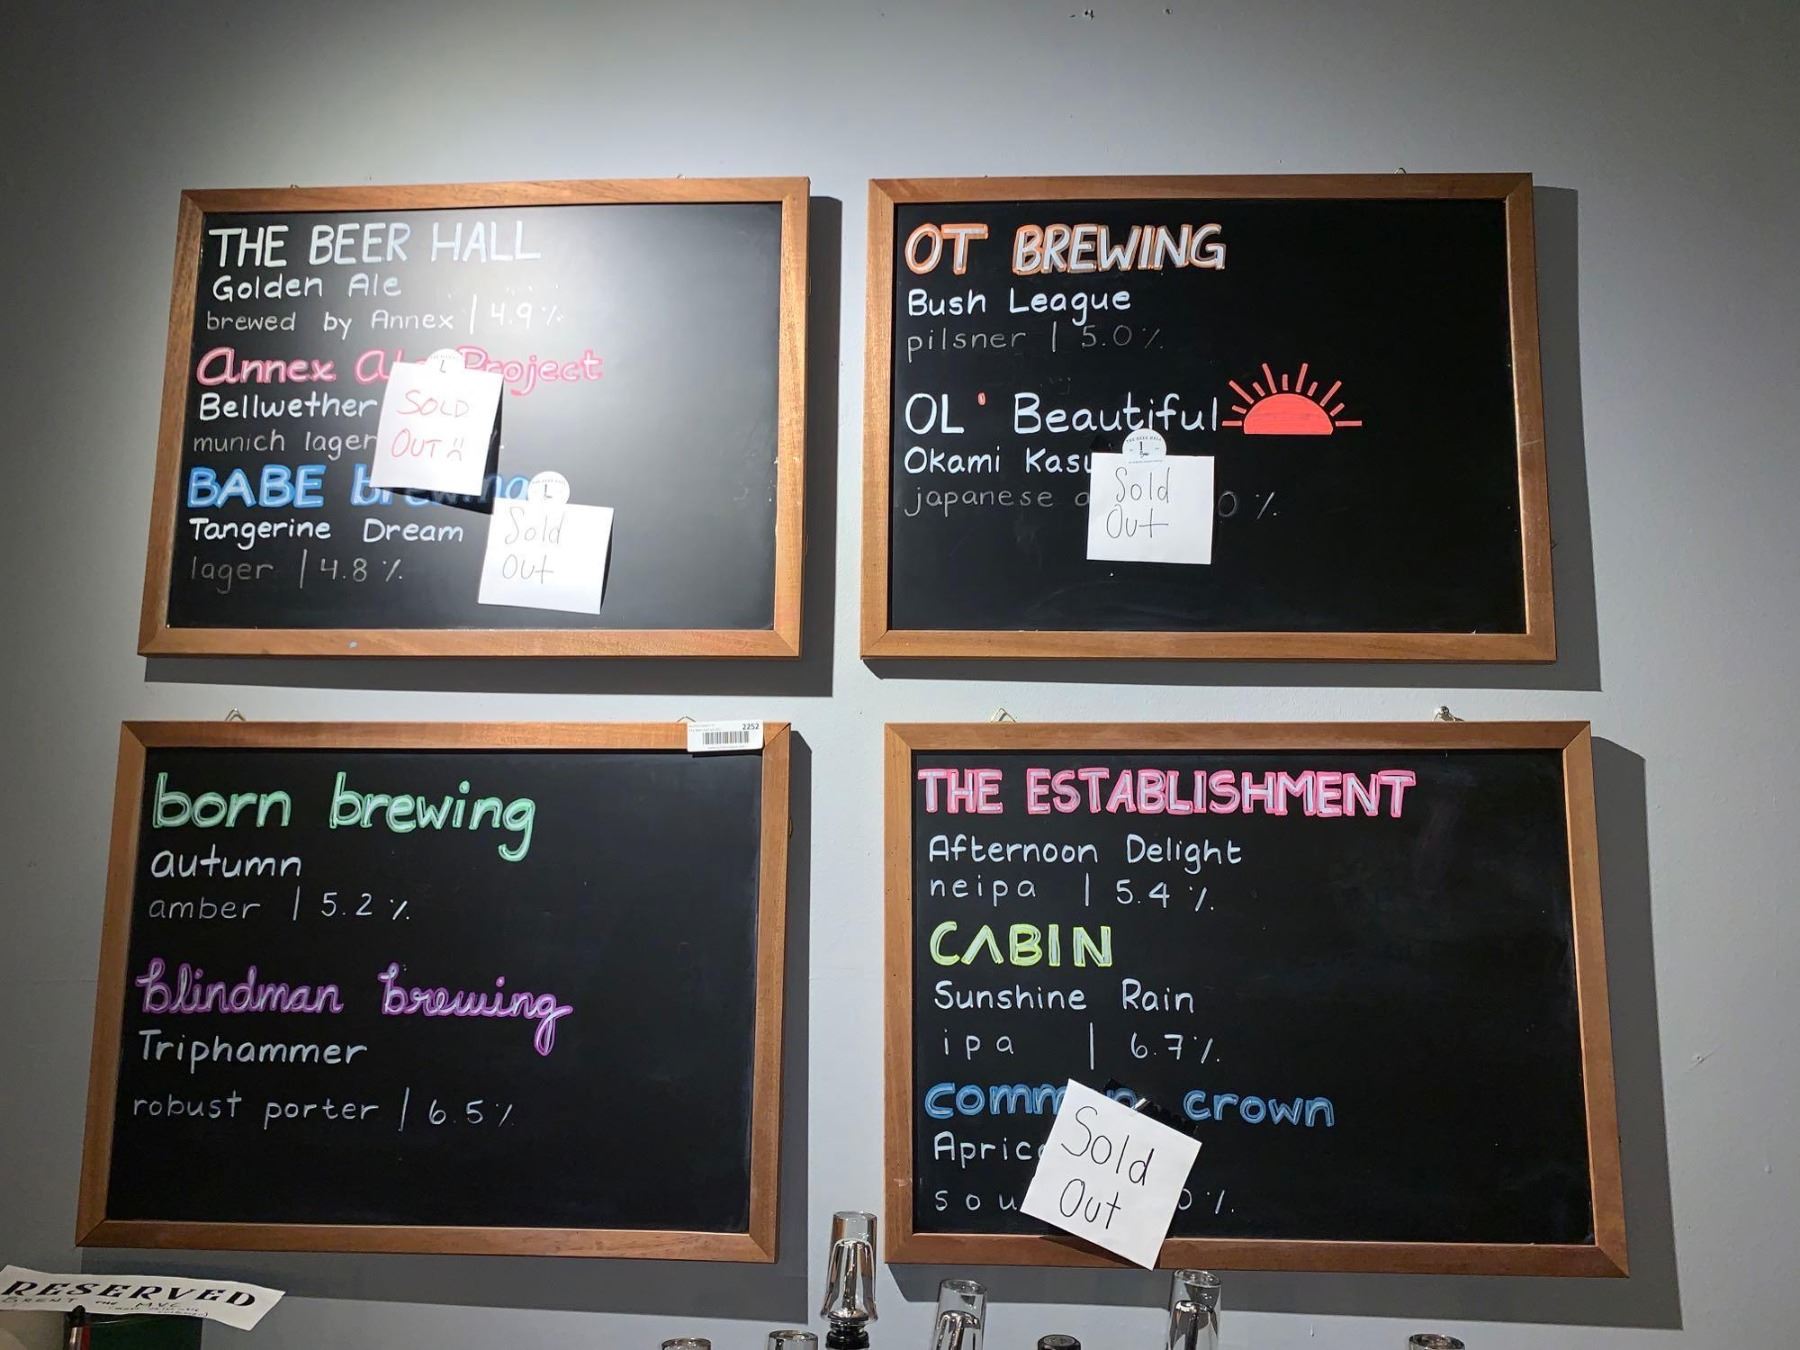 THE BEER HALL
Golden Ale
brewed by Annex | 4.9%
Annex Project
Bellwether
munich lager
SOLD
OUT
BABE brewing
Tangerine Dream
lager | 4.8%
Sold
Out
OT BREWING
Bush League
pilsner | 5.0%
OL' Beautiful
Okami
japanese
Sold
Out
born brewing
autumn
amber | 5.2%
blindman brewing
Triphammer
robust porter | 6.5%
2252
THE ESTABLISHMENT
Afternoon Delight
neipa | 5.4%
CABIN
Sunshine Rain
ipa | 6.7%
common crown
Sold
Out
RESERVED
BRENT
MVC